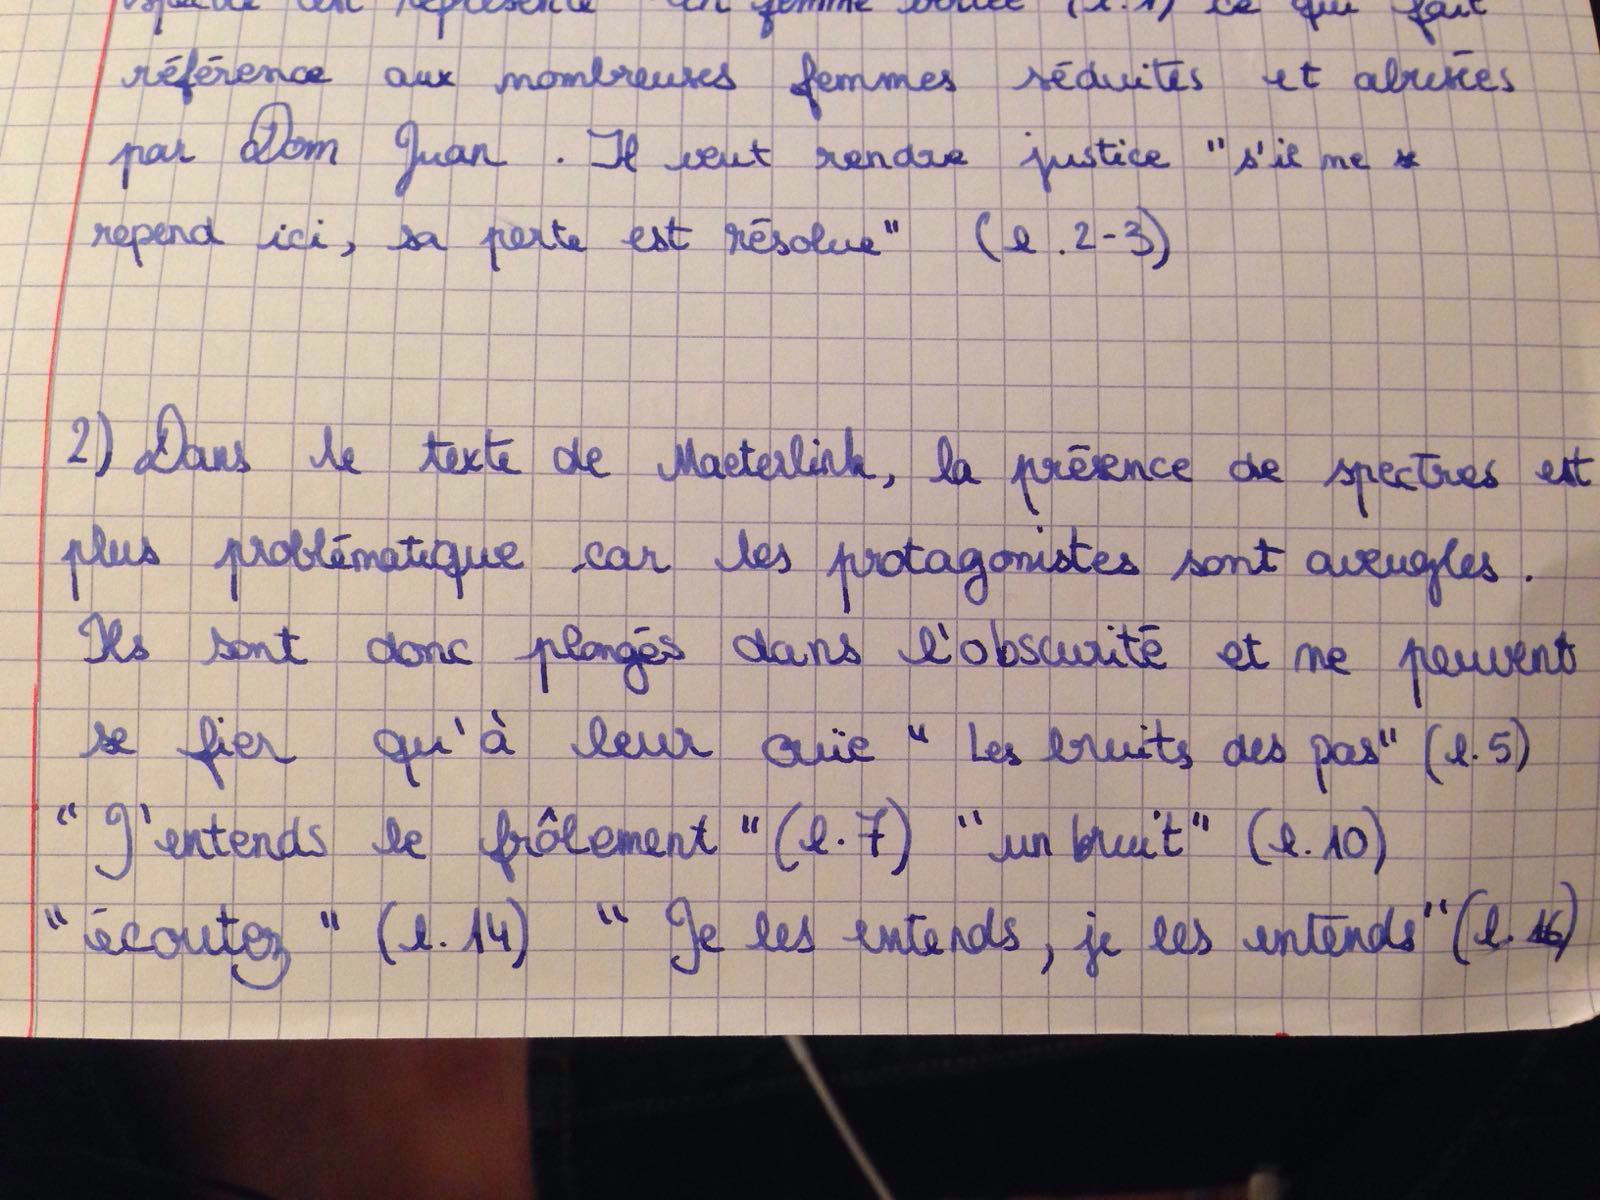 représenté en femme voilée (l.1) ce qui fait
référence aux nombreuses femmes séduites et abusées
par Dom Juan . Il veut rendre justice "s'il ne se
repend ici, sa perte est résolue" (l .2-3)
2) Dans le texte de Maeterlink, la présence de spectres est
plus problématique car les protagonistes sont aveugles .
Ils sont donc plongés dans l'obscurité et ne peuvent
se fier qu'à leur ouïe " Les bruits des pas" (l.5)
" J'entends le frôlement " (l.7) "un bruit" (l.10)
" écoutez " (l.14) " Je les entends, je les entends" (l.16)